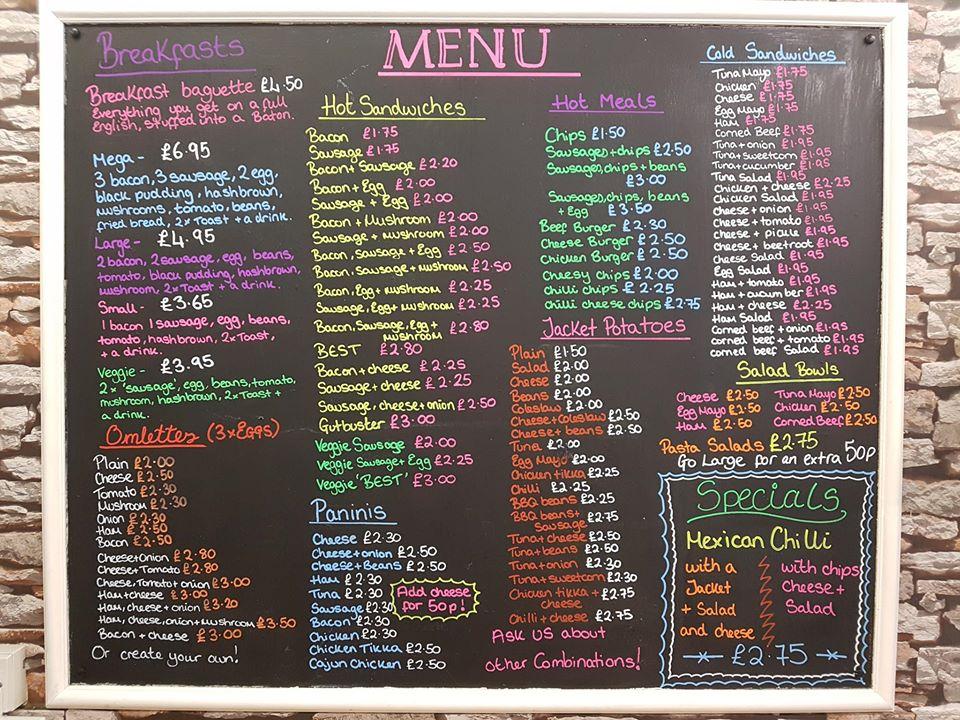 MENU
Breakfasts
Breakfast baguette £4.50
Everything you get on a full
English, stuffed into a Baton.
Mega - £6.95
3 bacon, 3 sausage, 2 egg,
black pudding, hashbrown,
mushrooms, tomato, beans,
fried bread, 2xToast + a drink.
Large - £4.95
2 bacon, 2 sausage, egg, beans,
tomato, black pudding, hashbrown,
mushroom, 2xToast + a drink.
Small - £3.65
1 bacon 1 sausage, egg, beans,
tomato, hashbrown, 2xToast,
+ a drink.
Veggie - £3.95
2 x 'sausage', egg, beans, tomato,
mushroom, hashbrown, 2xToast +
a drink.
Omlettes (3xEGGS)
Plain £2.00
Cheese £2.50
Tomato £2.30
Mushroom £2.30
Onion £2.30
Ham £2.50
Bacon £2.50
Cheese+Onion £2.80
Cheese+Tomato £2.80
Cheese, Tomato + onion £3.00
Ham+cheese £3.00
Ham, cheese + onion £3.20
Ham, cheese, onion + Mushroom £3.50
Bacon + cheese £3.00
Or create your own!
Hot Sandwiches
Bacon £1.75
Sausage £1.75
Bacon + Sausage £2.20
Bacon + Egg £2.00
Sausage + Egg £2.00
Bacon + Mushroom £2.00
Sausage + Mushroom £2.00
Bacon, Sausage + Egg £2.50
Bacon, Sausage + Mushroom £2.50
Bacon, Egg + Mushroom £2.25
Sausage, Egg + Mushroom £2.25
Bacon, Sausage, Egg +
Mushroom £2.80
BEST £2.80
Bacon + cheese £2.25
Sausage + cheese £2.25
Sausage, cheese + onion £2.50
Gutbuster £3.00
Veggie Sausage £2.00
Veggie Sausage + Egg £2.25
Veggie 'BEST' £3.00
Paninis
Cheese £2.30
Cheese + onion £2.50
Cheese + Beans £2.50
Ham £2.30
Tuna £2.30
Sausage £2.30
Bacon £2.30
Chicken £2.30
Chicken Tikka £2.50
Cajun Chicken £2.50
Add cheese
for 50p!
Hot Meals
Chips £1.50
Sausages + chips £2.50
Sausages, chips + beans
£3.00
Sausages, chips, beans
+ Egg £3.50
Beef Burger £2.30
Cheese Burger £2.50
Chicken Burger £2.50
Cheesy chips £2.00
Chilli chips £2.25
Chilli cheese chips £2.75
Jacket Potatoes
Plain £1.50
Salad £2.00
Cheese £2.00
Beans £2.00
Coleslaw £2.00
Cheese + Coleslaw £2.50
Cheese + beans £2.50
Tuna £2.00
Egg Mayo £2.00
Chicken tikka £2.25
Chilli £2.25
BBQ beans £2.25
BBQ beans +
Sausage £2.75
Tuna + cheese £2.50
Tuna + beans £2.50
Tuna + onion £2.30
Tuna + sweetcorn £2.30
Chicken tikka +
cheese £2.75
Chilli + cheese £2.75
ASK US about
other Combinations!
Cold Sandwiches
Tuna Mayo £1.75
Chicken £1.75
Cheese £1.75
Egg Mayo £1.75
Ham £1.75
Corned Beef £1.75
Tuna + onion £1.95
Tuna + sweetcorn £1.95
Tuna + cucumber £1.95
Tuna Salad £1.95
Chicken + cheese £2.25
Chicken Salad £1.95
Cheese + onion £1.95
Cheese + tomato £1.95
Cheese + pickle £1.95
Cheese + beetroot £1.95
Cheese Salad £1.95
Egg Salad £1.95
Ham + tomato £1.95
Ham + cucumber £1.95
Ham + cheese £2.25
Ham Salad £1.95
Corned beef + onion £1.95
Corned beef + tomato £1.95
Corned beef Salad £1.95
Salad Bowls
Cheese £2.50 Tuna Mayo £2.50
Egg Mayo £2.50 Chicken £2.50
Ham £2.50 Corned Beef £2.50
Pasta Salads £2.75
Go Large for an extra 50p
Specials
Mexican Chilli
with a
Jacket
+ Salad
and cheese
with chips
Cheese +
Salad
£2.75